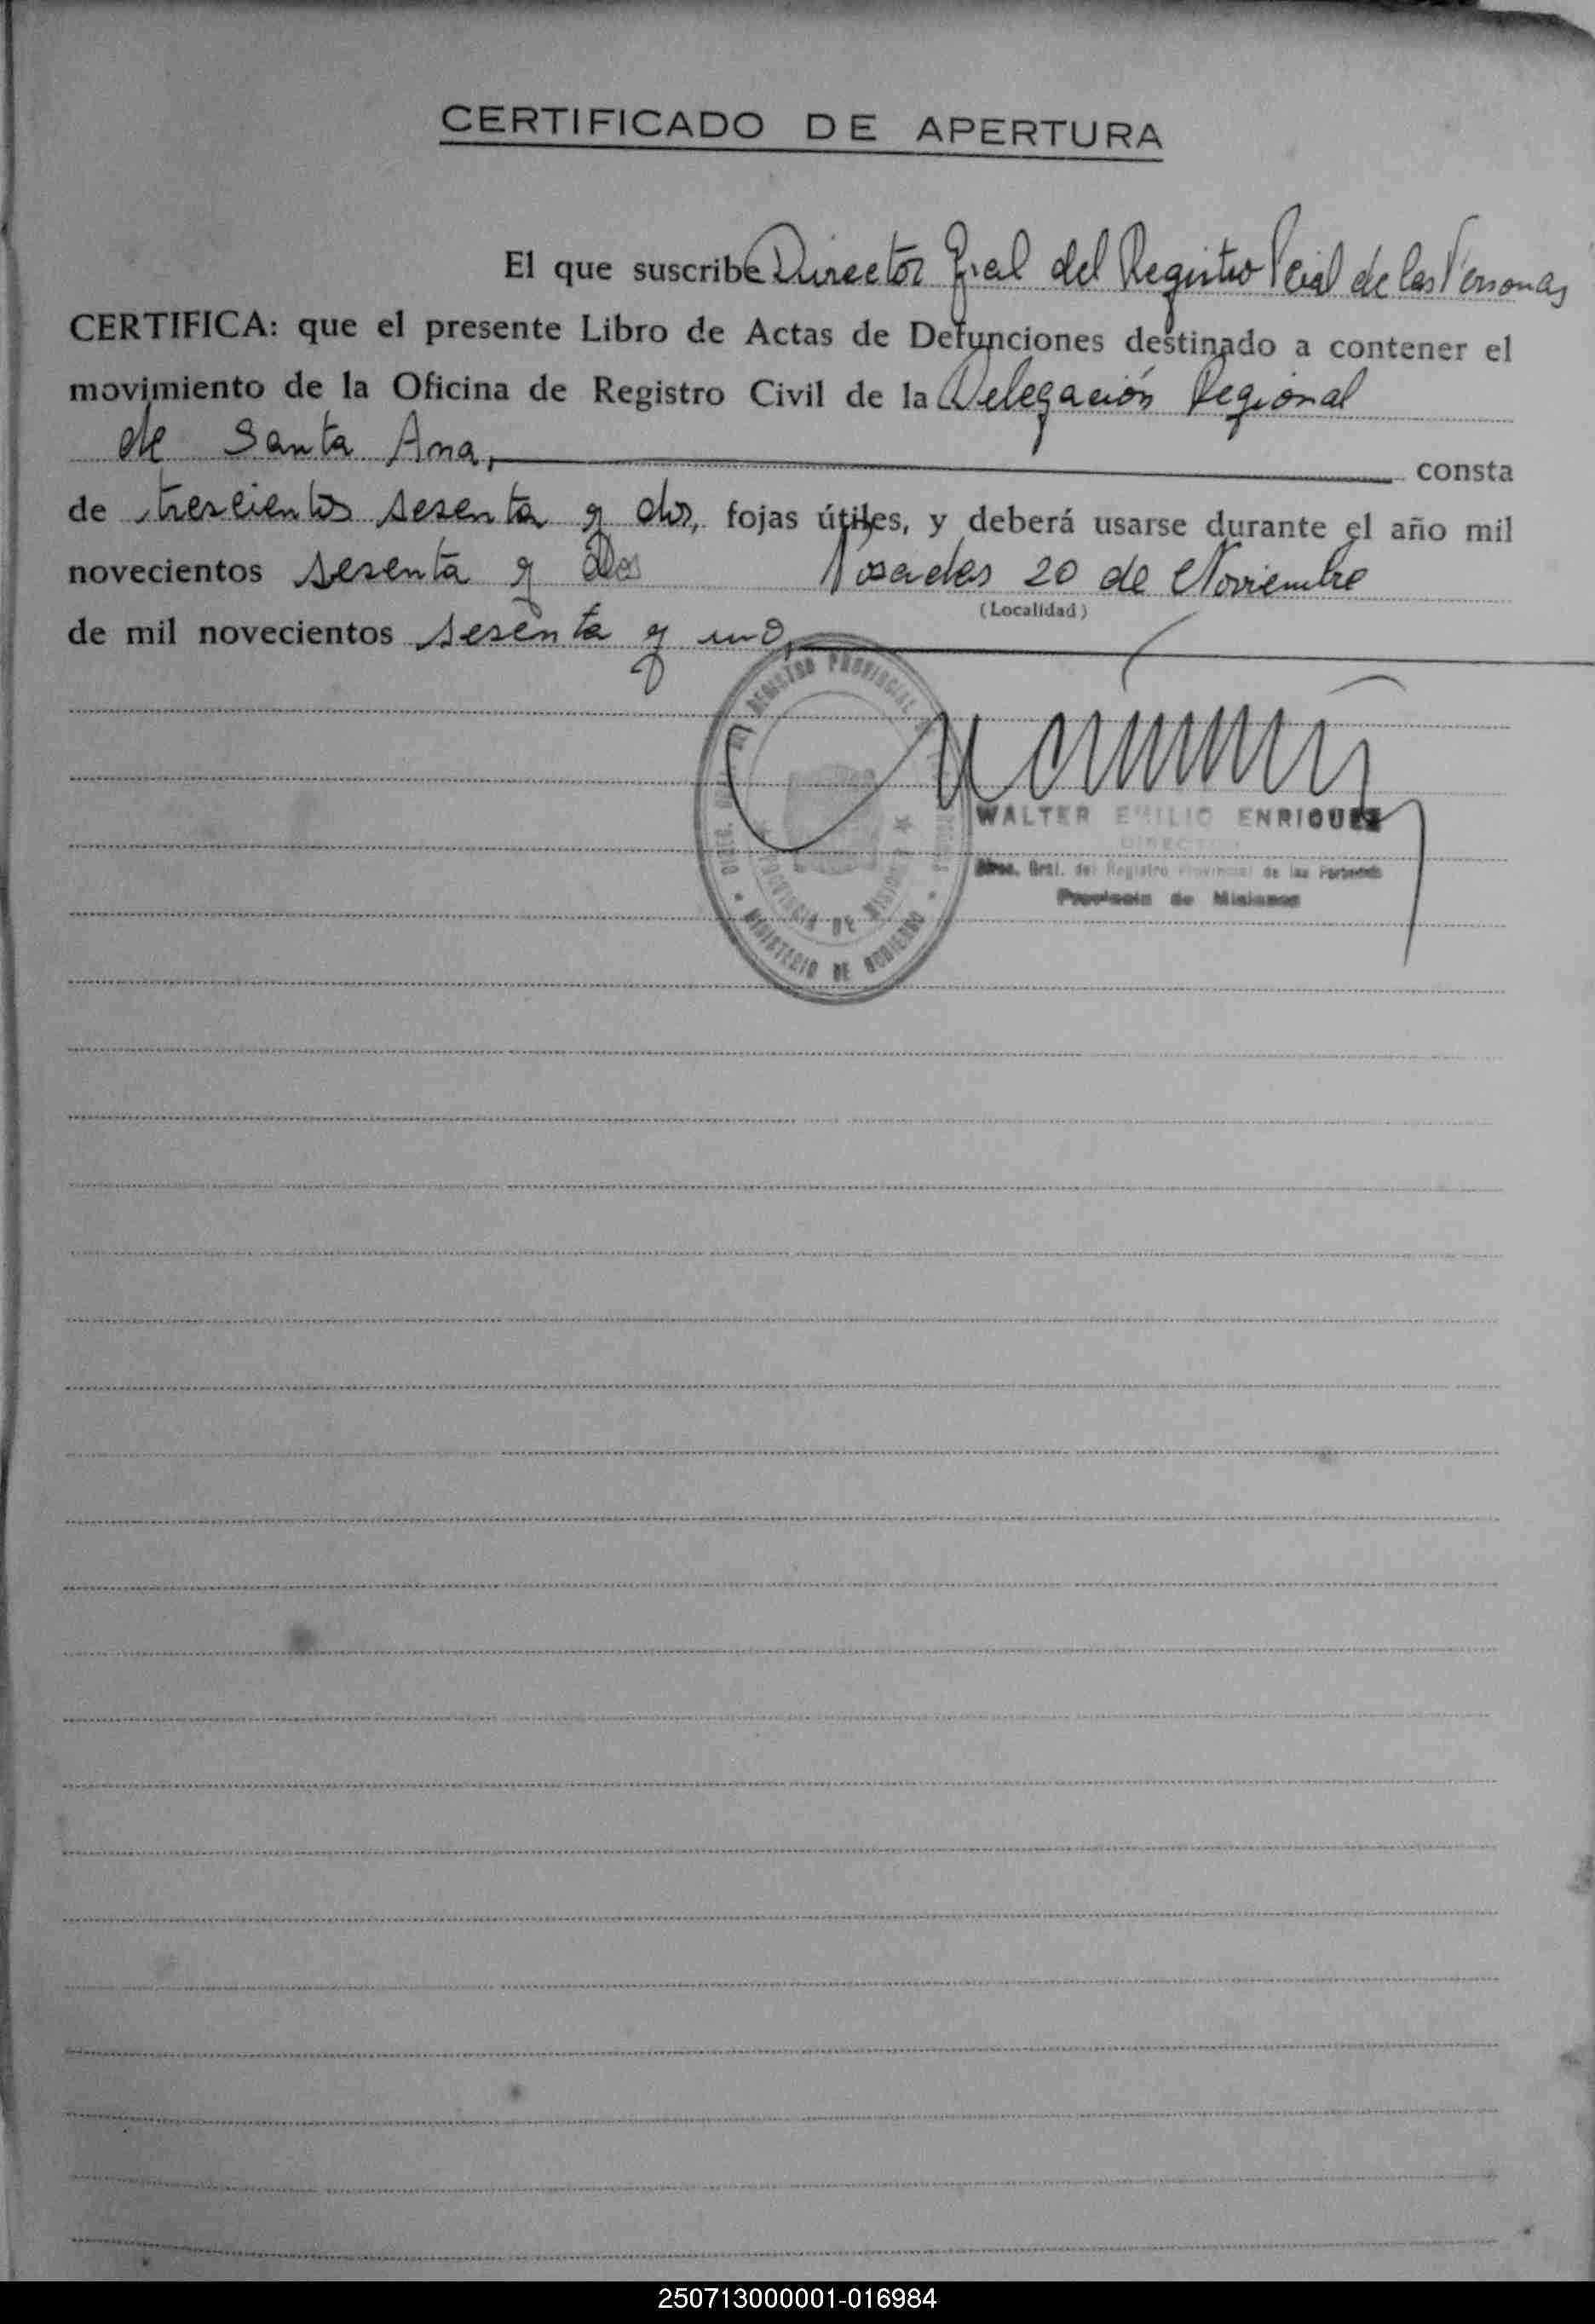 CERTIFICADO DE APERTURA
El que suscribe Director Gral del Registro Pcial de las Personas
CERTIFICA: que el presente Libro de Actas de Defunciones destinado a contener el
movimiento de la Oficina de Registro Civil de la Delegación Regional
de Santa Ana, consta
de trescientos sesenta y dos, fojas útiles, y deberá usarse durante el año mil
novecientos sesenta y dos Posadas 20 de Noviembre
(Localidad)
de mil novecientos sesenta y uno,
REGISTRO PROVINCIAL
PROVINCIA DE MISIONES
MINISTERIO DE GOBIERNO
WALTER EMILIO ENRIQUEZ
DIRECTOR
Direc. Gral. del Registro Provincial de las Personas
Provincia de Misiones
250713000001-016984